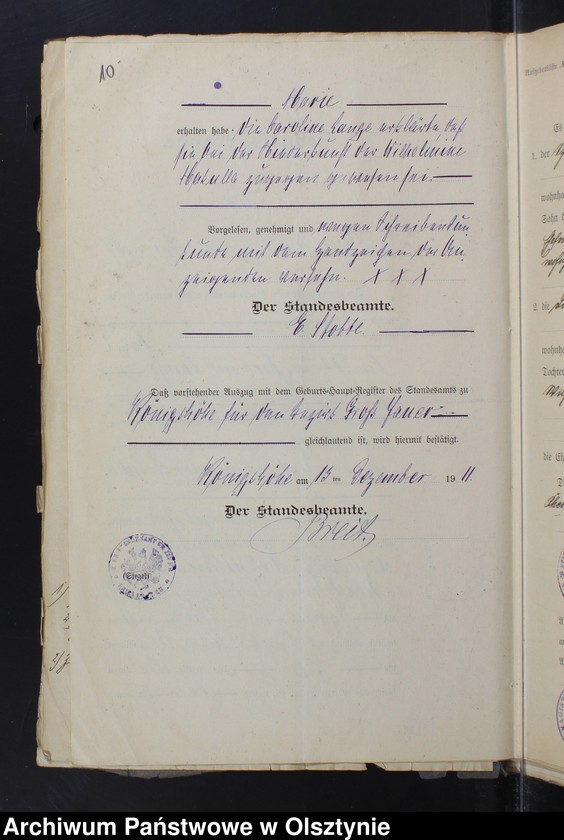 10
Marie
erhalten habe. Die Caroline Lange erklärte, daß
sie bei der Niederkunft der Wilhelmine
zugegen gewesen sei.
Vorgelesen, genehmigt und wegen Schreibensun-
kunde mit dem Handzeichen der An-
zeigenden versehn. X X X
Der Standesbeamte.
E Stobbe
Daß vorstehender Auszug mit dem Geburts-Haupt-Register des Standesamts zu
Königshöhe für den Bezirk Groß
gleichlautend ist, wird hiermit bestätigt.
Königshöhe am 13 ten Dezember 1911.
Der Standesbeamte.
Breit
(Siegel)
1. der
wohnha
Sohn d
2. die
wohnh
Tochter
die Eh
Archiwum Państwowe w Olsztynie